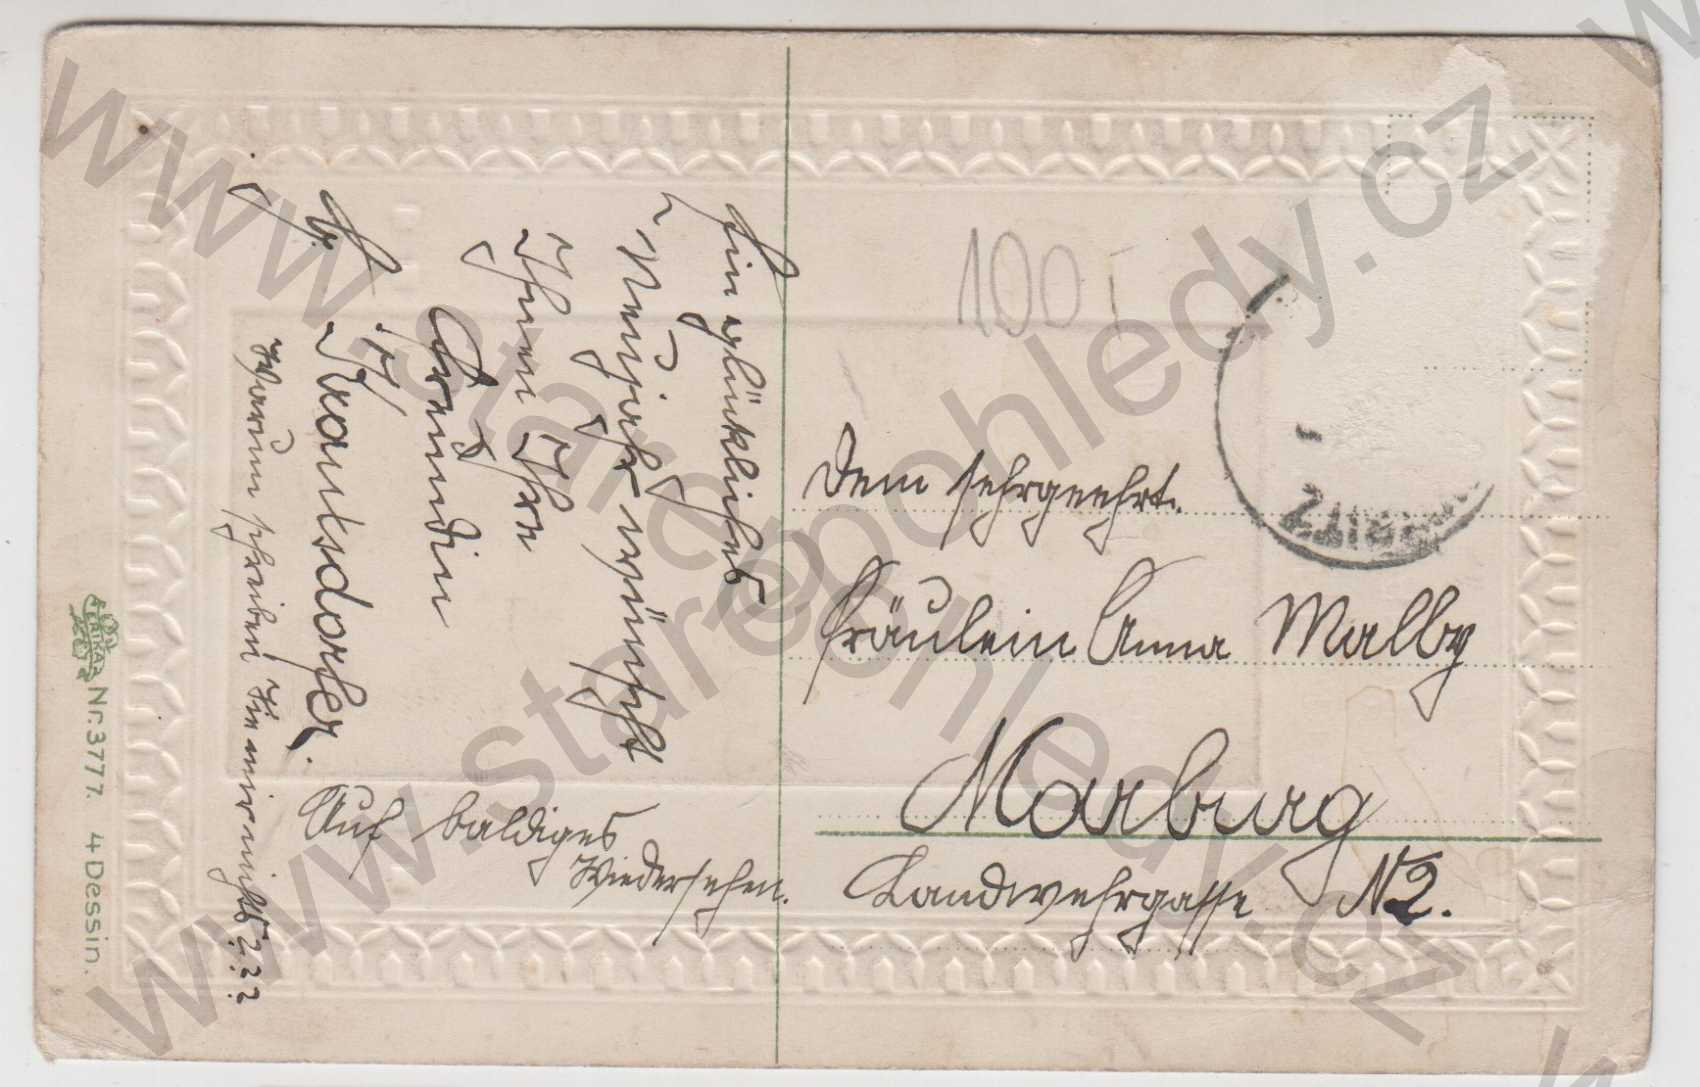 Ein glückliches
Neujahr wünscht
Ihnen Ihre
Freundin
Kranksdorfer.
Warum schreiben Sie mir nichts???
Auf baldiges
Wiedersehen.
Dem sehrgeehrt.
Fräulein Anna Malby
Marburg
Landwehrgasse N2.
100
ERIKA
Nr. 3777. 4 Dessin.
www.starepohledy.cz
www.starepohledy.cz